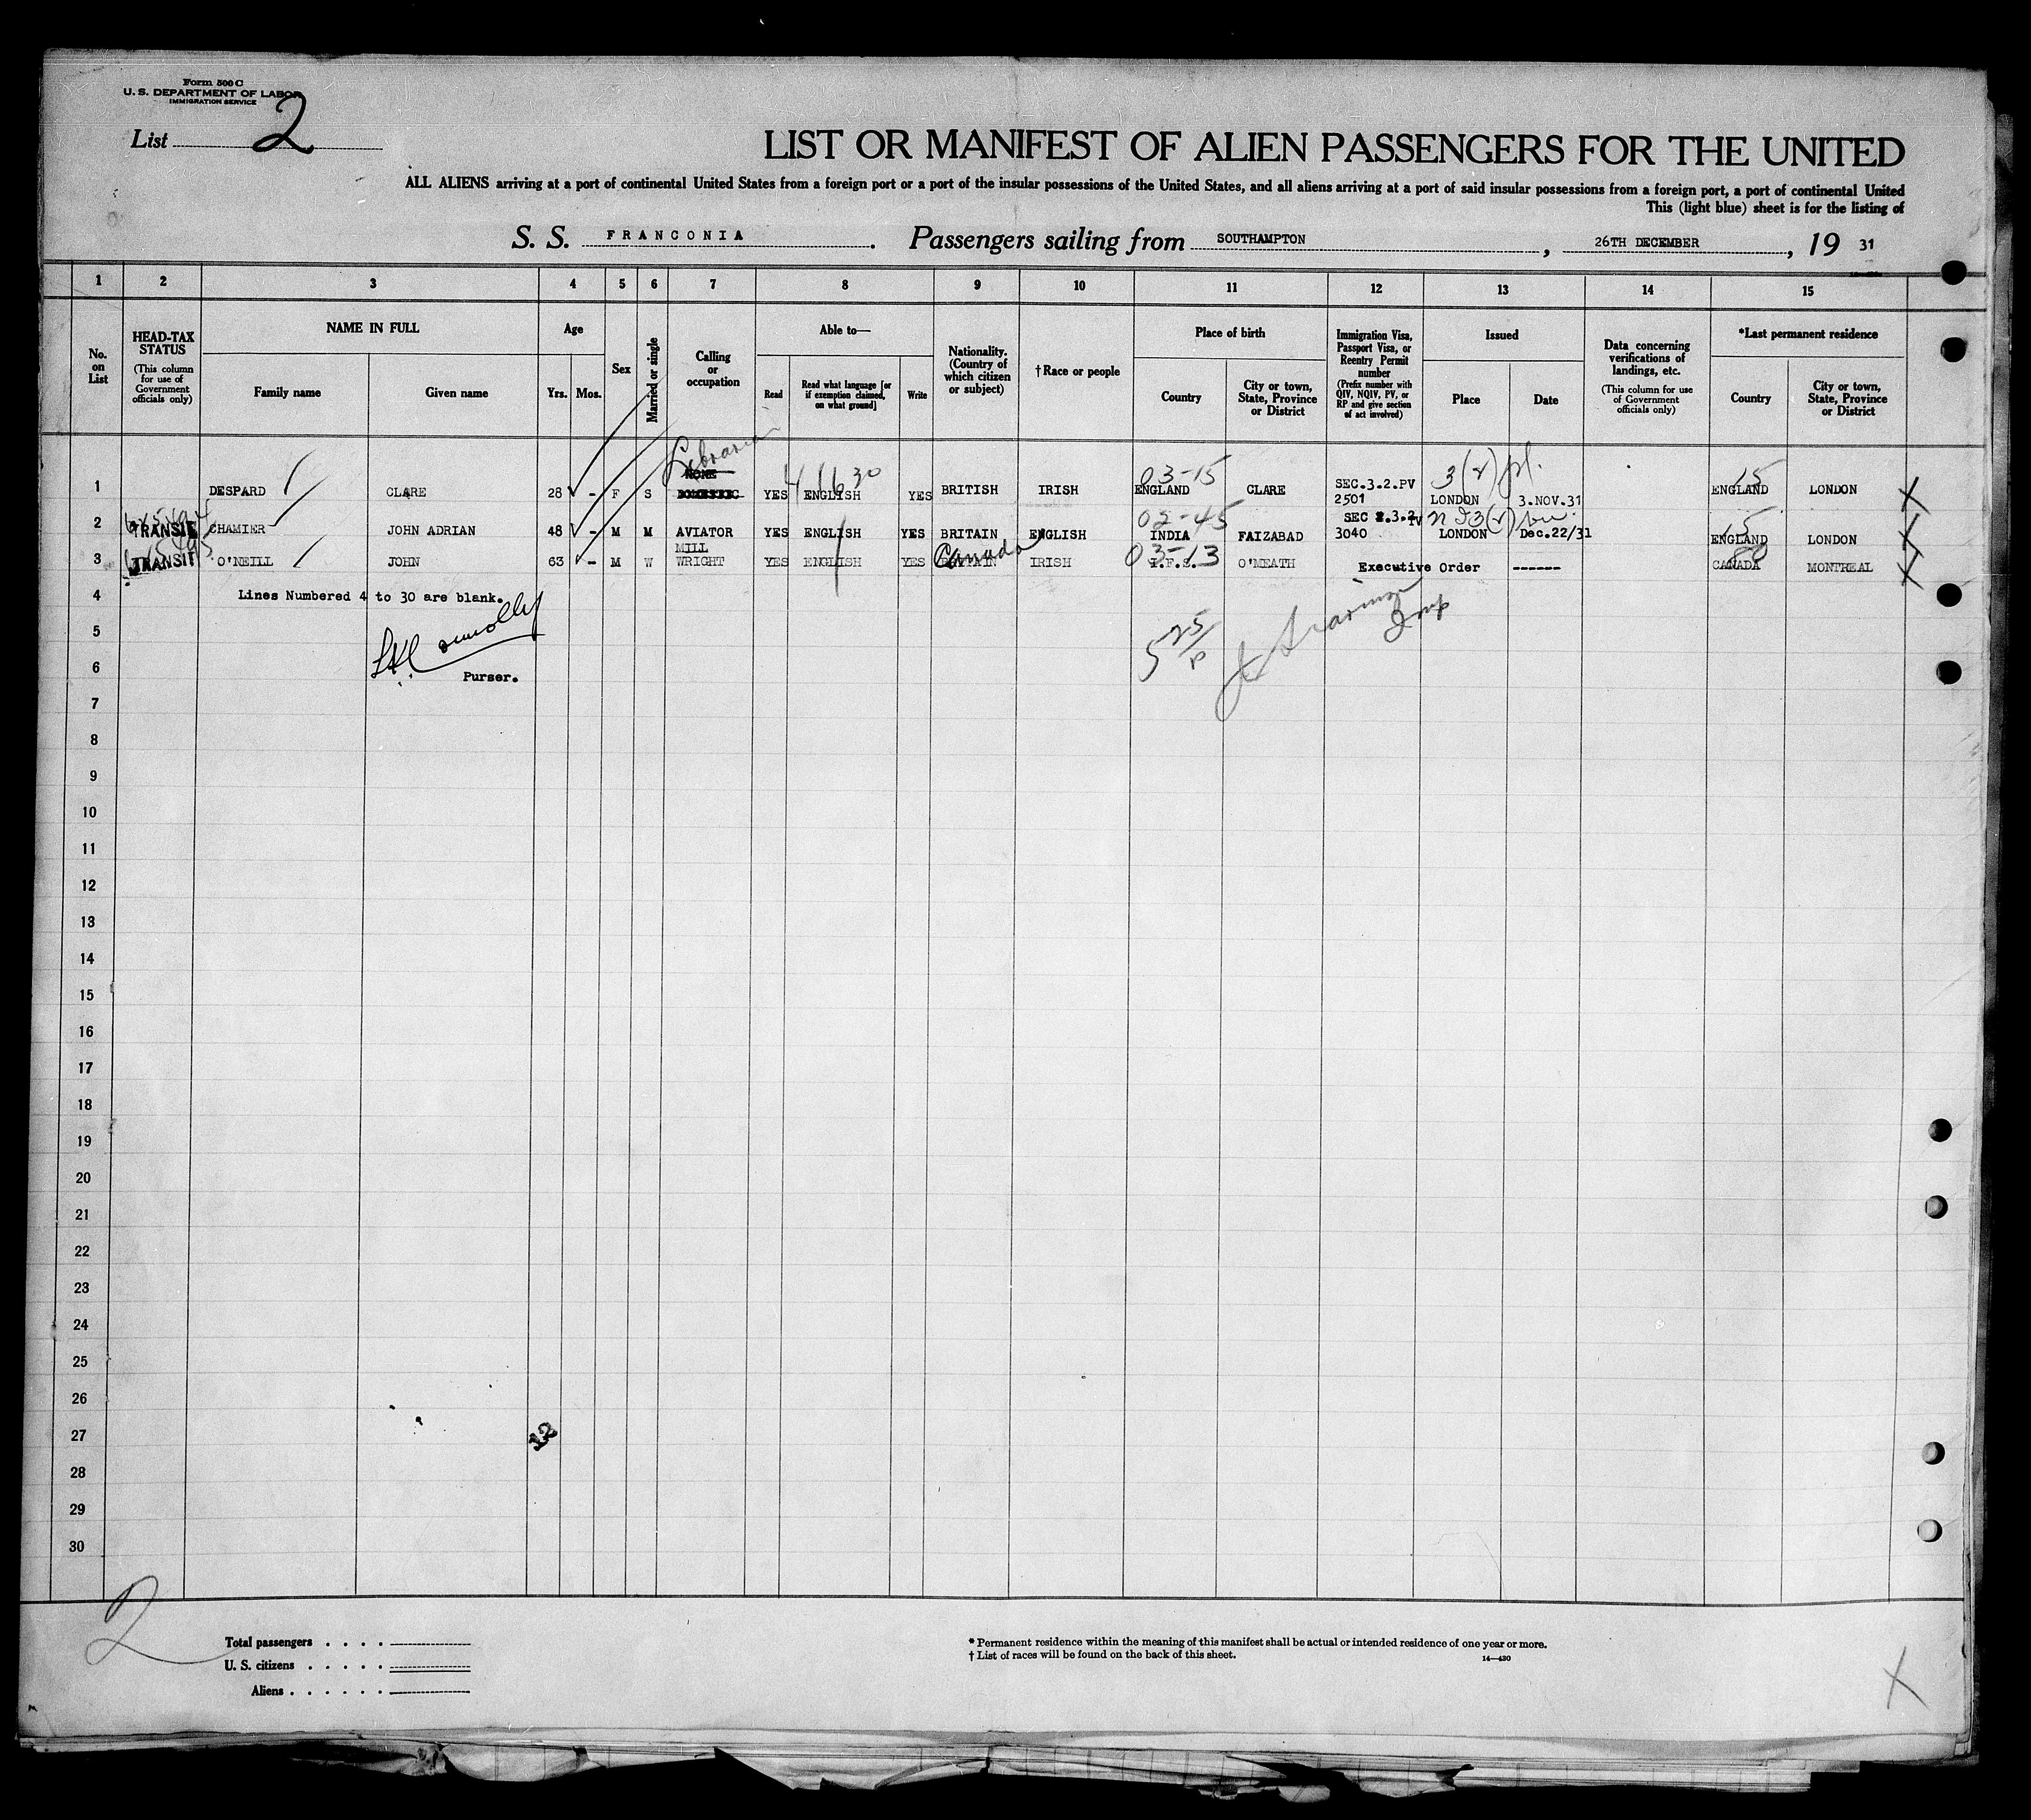 Form 500 C
U. S. DEPARTMENT OF LABOR
IMMIGRATION SERVICE
List 2
LIST OR MANIFEST OF ALIEN PASSENGERS FOR THE UNITED
ALL ALIENS arriving at a port of continental United States from a foreign port or a port of the insular possessions of the United States, and all aliens arriving at a port of said insular possessions from a foreign port, a port of continental United
This (light blue) sheet is for the listing of
S. S. FRANCONIA. Passengers sailing from SOUTHAMPTON, 26TH DECEMBER, 19 31
1 2 3 4 5 6 7 8 9 10 11 12 13 14 15
No. on List
HEAD-TAX STATUS
(This column for use of Government officials only)
NAME IN FULL
Family name
Given name
Age
Yrs. Mos.
Sex
Married or single
Calling or occupation
Able to—
Read
Read what language [or if exemption claimed, on what ground]
Write
Nationality. (Country of which citizen or subject)
†Race or people
Place of birth
Country
City or town, State, Province or District
Immigration Visa, Passport Visa, or Reentry Permit number
(Prefix number with QIV, NQIV, PV, or RP and give section of act involved)
Issued
Place
Date
Data concerning verifications of landings, etc.
(This column for use of Government officials only)
*Last permanent residence
Country
City or town, State, Province or District
Librarian
NONE
03-15
3(2)
15
1 DESPARD CLARE 28 - F S DOMESTIC YES ENGLISH YES BRITISH IRISH ENGLAND CLARE SEC.3.2.PV 2501 LONDON 3.NOV.31 ENGLAND LONDON X
02-45
15
2 TRANSIT CHAMIER JOHN ADRIAN 48 - M M AVIATOR YES ENGLISH YES BRITAIN ENGLISH INDIA FAIZABAD SEC 3.2 3040 LONDON Dec.22/31 ENGLAND LONDON X
03-13
80
3 TRANSIT O'NEILL JOHN 63 - M W MILL WRIGHT YES ENGLISH YES Canada IRISH I.F.S. O'MEATH Executive Order ------ CANADA MONTREAL X
4 Lines Numbered 4 to 30 are blank.
5
6 Purser.
7
8
9
10
11
12
13
14
15
16
17
18
19
20
21
22
23
24
25
26
27 12
28
29
30
2
Total passengers . . . .
U. S. citizens . . . . .
Aliens . . . . . .
* Permanent residence within the meaning of this manifest shall be actual or intended residence of one year or more.
† List of races will be found on the back of this sheet.
14—430
X